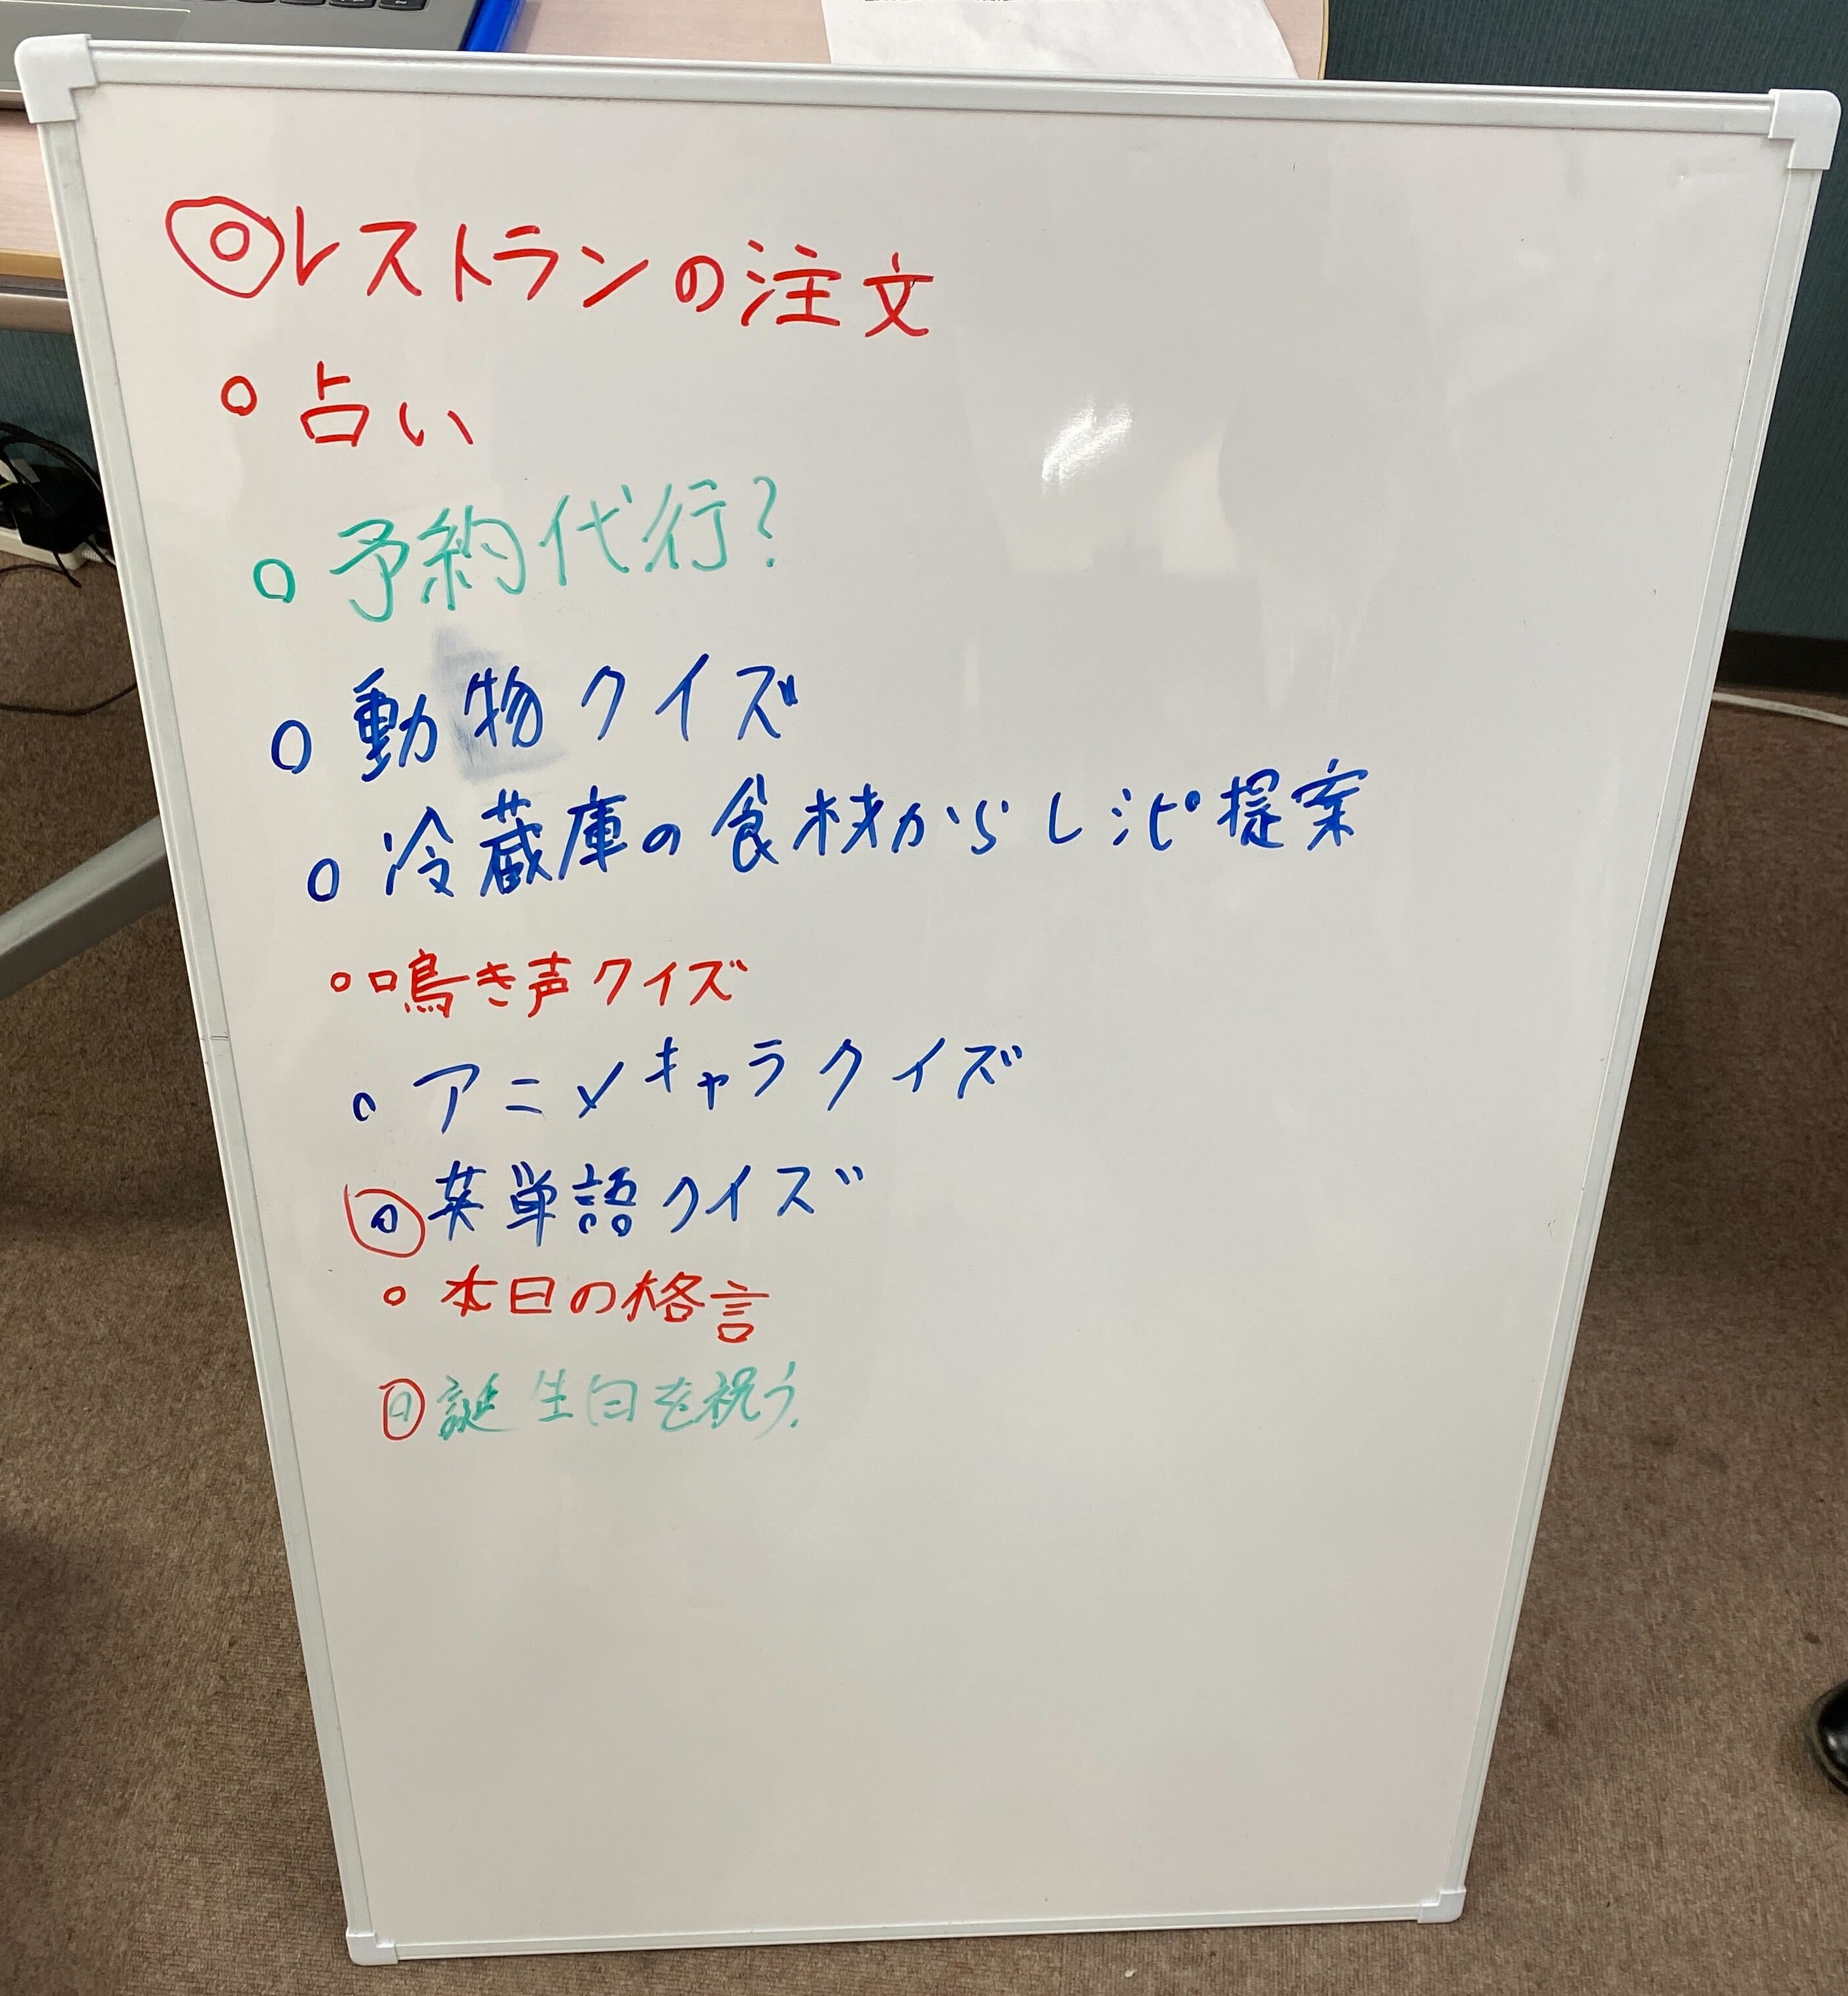 ◎レストランの注文
○ 占い
○ 予約代行?
○ 動物クイズ
○ 冷蔵庫の食材からレシピ提案
○ 鳴き声クイズ
○ アニメキャラクイズ
◎ 英単語クイズ
○ 本日の格言
◎ 誕生日を祝う.